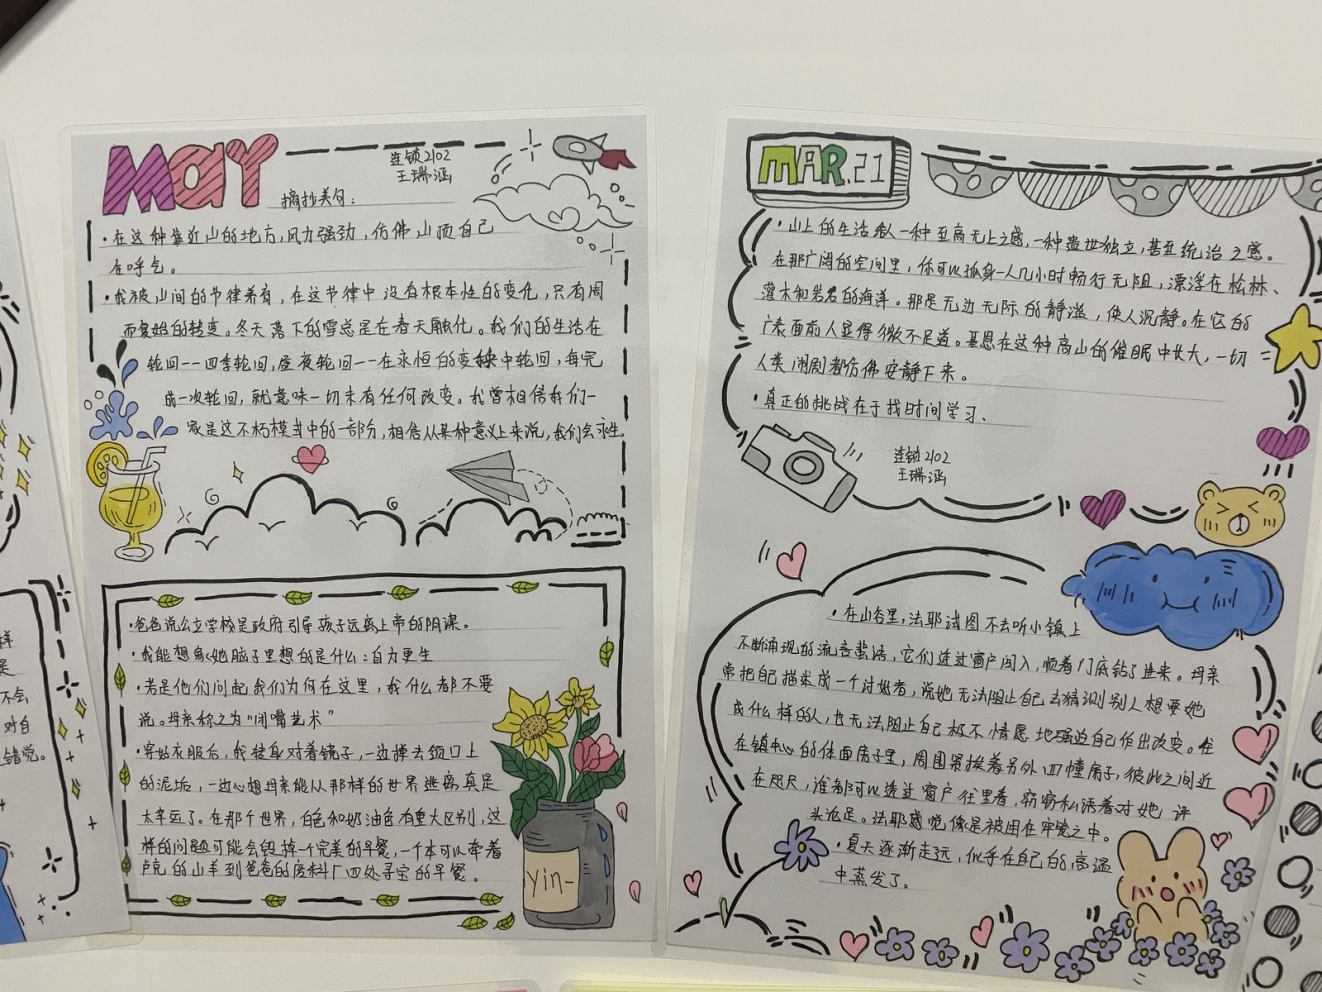 MAY
连锁2102
王瑞涵
摘抄美句：
·在这种靠近山的地方,风力强劲,仿佛山顶自己
在呼气。
·我被山间的节律养育，在这节律中没有根本性的变化,只有周
而复始的转变。冬天落下的雪总是在春天融化。我们的生活在
轮回--四季轮回,昼夜轮回--在永恒的变换中轮回,每完
成一次轮回，就意味一切未有任何改变。我曾相信我们一
家是这不朽模式中的一部分,相信从某种意义上来说,我们会永生。
·爸爸说公立学校是政府引导孩子远离上帝的阴谋。
·我能想象她脑子里想的是什么:自力更生
·若是他们问起我们为何在这里，我什么都不要
说。母亲称之为"闭嘴艺术"
·穿好衣服后，我转身对着镜子，一边掸去领口上
的泥垢，一边心想母亲能从那样的世界逃离真是
太幸运了。在那个世界，白色和奶油色有重大区别，这
样的问题可能会毁掉一个完美的早餐,一个本可以牵着
卢克的山羊到爸爸的废料厂四处寻宝的早餐。
yin-
MAR.21
·山上的生活给人一种至高无上之感,一种遗世独立,甚至统治之感。
在那广阔的空间里，你可以孤身一人几小时畅行无阻，漂浮在松林、
灌木和岩石的海洋。那是无边无际的静谧，使人沉静。在它的
广袤面前人显得微不足道。基恩在这种高山的催眠中长大，一切
人类闹剧都仿佛安静下来。
·真正的挑战在于找时间学习、
连锁2102
王瑞涵
·在山谷里,法耶试图不去听小镇上
不断涌现的流言蜚语，它们透过窗户闯入，顺着门底钻了进来。母亲
常把自己描述成一个讨好者，说她无法阻止自己去猜测别人想要她
成什么样的人,也无法阻止自己极不情愿地强迫自己作出改变。住
在镇中心的体面房子里，周围紧挨着另外四幢房子，彼此之间近
在咫尺，谁都可以透过窗户往里看，窃窃私语着对她评
头论足。法耶感觉像是被困在牢笼之中。
·夏天逐渐走远，似乎在自己的高温
中蒸发了。
样
是
不会
对自
错觉。